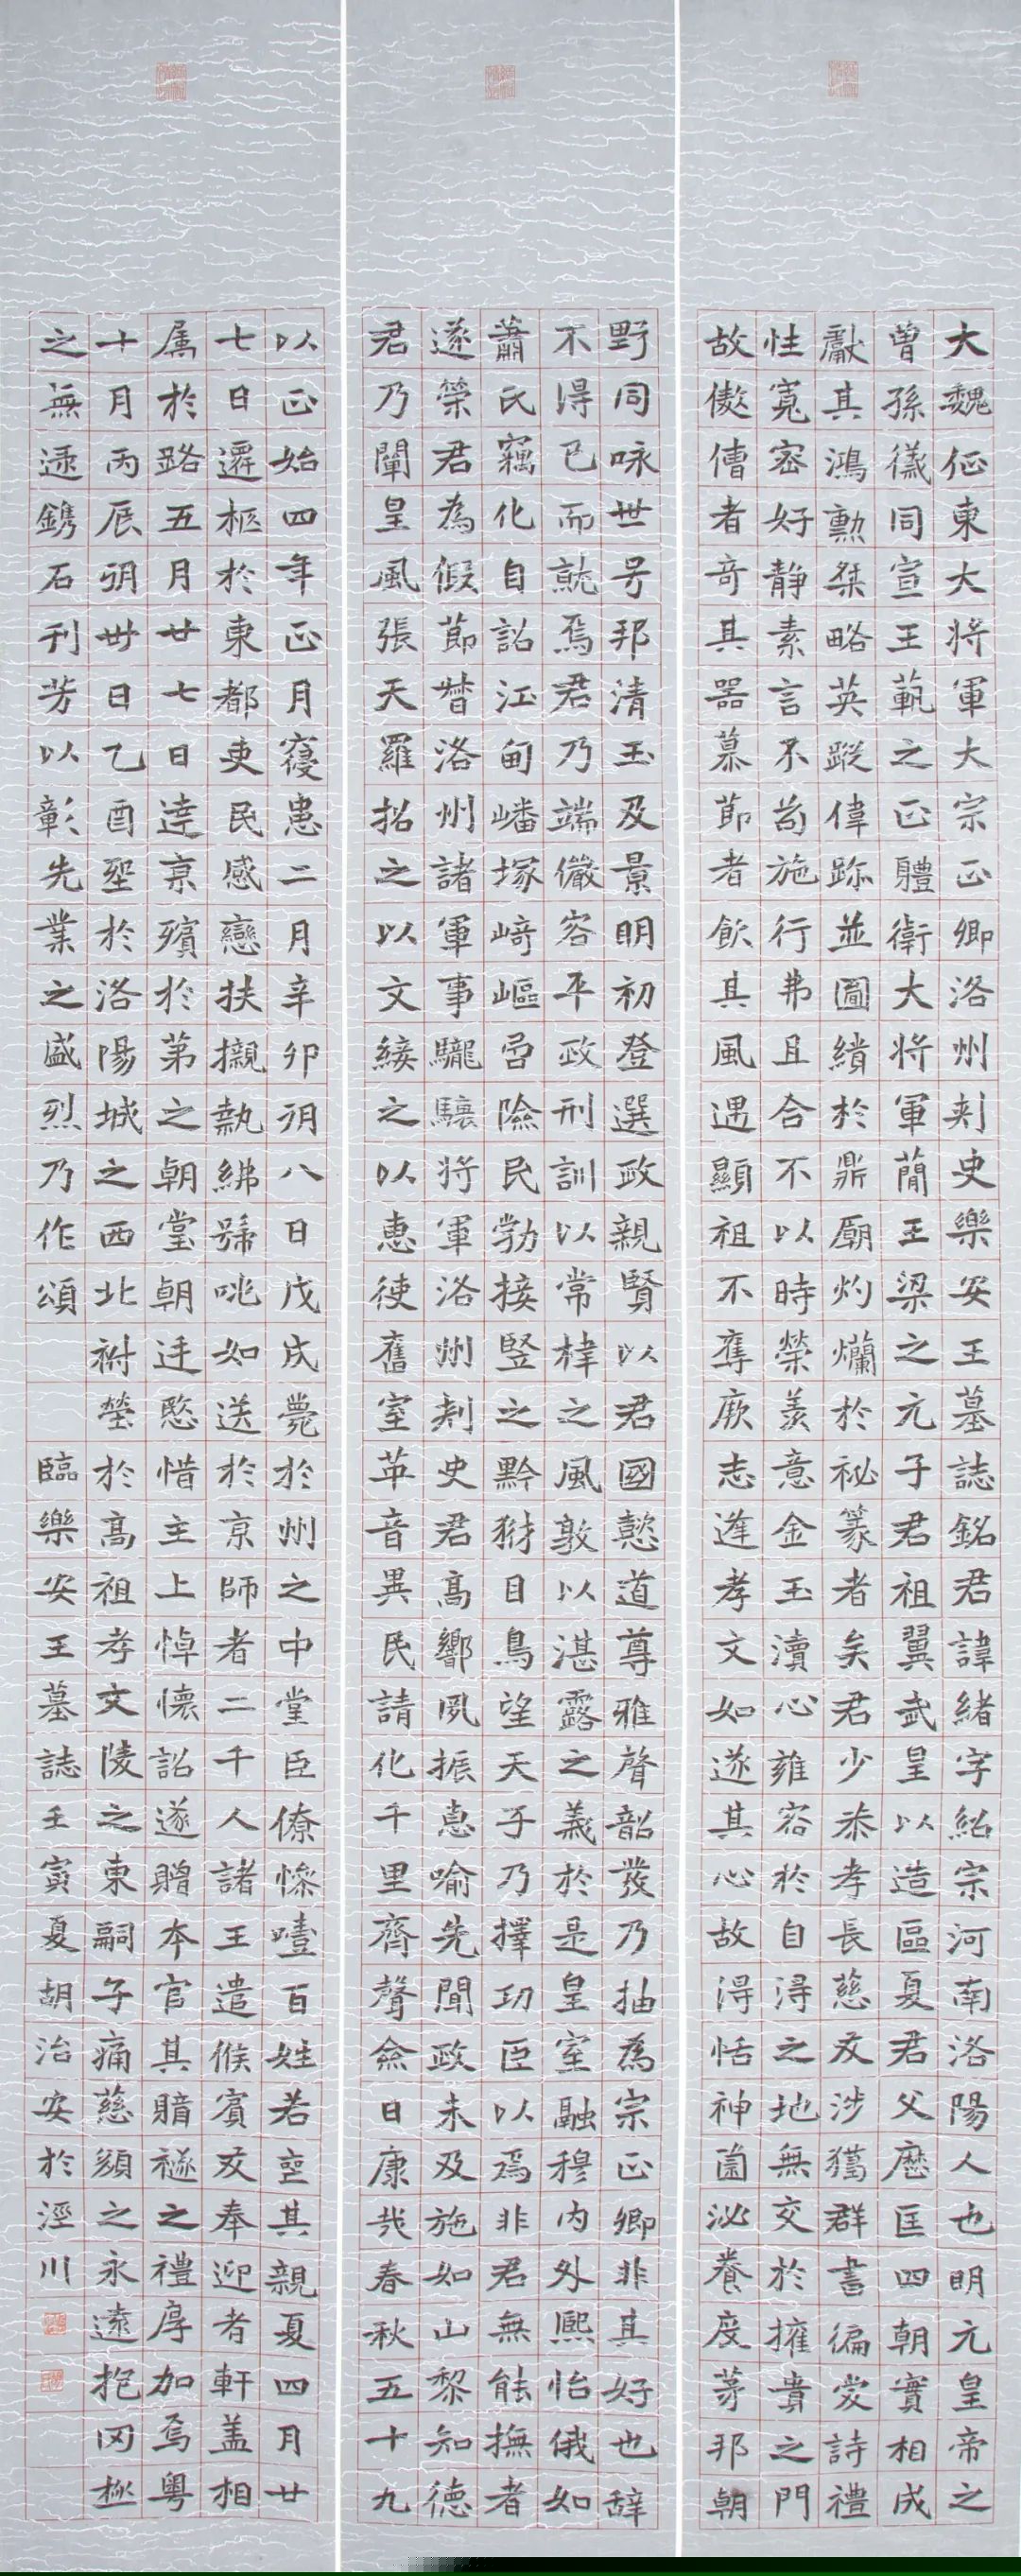 大魏征東大將軍大宗正卿洛州刺史樂安王墓誌銘君諱緒字紹宗河南洛陽人也明元皇帝之
曾孫儀同宣王範之正軆衛大將軍蕳王梁之元子君祖翼武皇以造區夏君父歷匡四朝實相成
獻其鴻勳桀略英蹤偉跡並圖績於鼎廟灼爛於祕篆者矣君少恭孝長慈友涉獵群書徧愛詩禮
性寬密好静素言不苟施行弗且合不以時榮羡意金玉瀆心雍容於自得之地無交於擁貴之門
故傲儈者奇其器慕節者飲其風遇顯祖不奪厥志逢孝文如遂其心故得恬神園泌養度茅邦朝
野同咏世号邦清王及景明初登選政親賢以君國懿道尊雅聲韶發乃抽為宗正卿非其好也辞
不得已而就焉君乃端儼容平政刑訓以常棣之風敦以湛露之義於是皇室融穆内外熙怡俄如
蕭氏竊化自詔江甸嶓塚崎嶇召險民勃接竪之黔豺目鳥望天子乃擇功臣以爲非君無能撫者
遂榮君為假節督洛州諸軍事驪驤將軍洛州刺史君高嚮夙振惠喻先聞政未及施如山黎知德
君乃闡皇風張天羅招之以文綏之以惠使舊室革音異民請化千里齊聲僉曰康哉春秋五十九
以正始四年正月寢患二月辛卯朔八日戊戌薨於州之中堂臣僚慘噎百姓若喪其親夏四月廿
七日遷柩於東都吏民感戀扶櫬執紼號咷如送於京師者二千人諸王遣候賓友奉迎者軒盖相
属於路五月廿七日達京殯於第之朝堂朝廷愍惜主上悼懷詔遂贈本官其賵襚之禮厚加焉粤
十月丙辰朔卅日乙酉堲於洛陽城之西北祔塋於高祖孝文陵之東嗣子痛慈顔之永遠抱罔極
之無逯鐫石刊芳以彰先業之盛烈乃作頌
臨樂安王墓誌壬寅夏胡治安於涇川